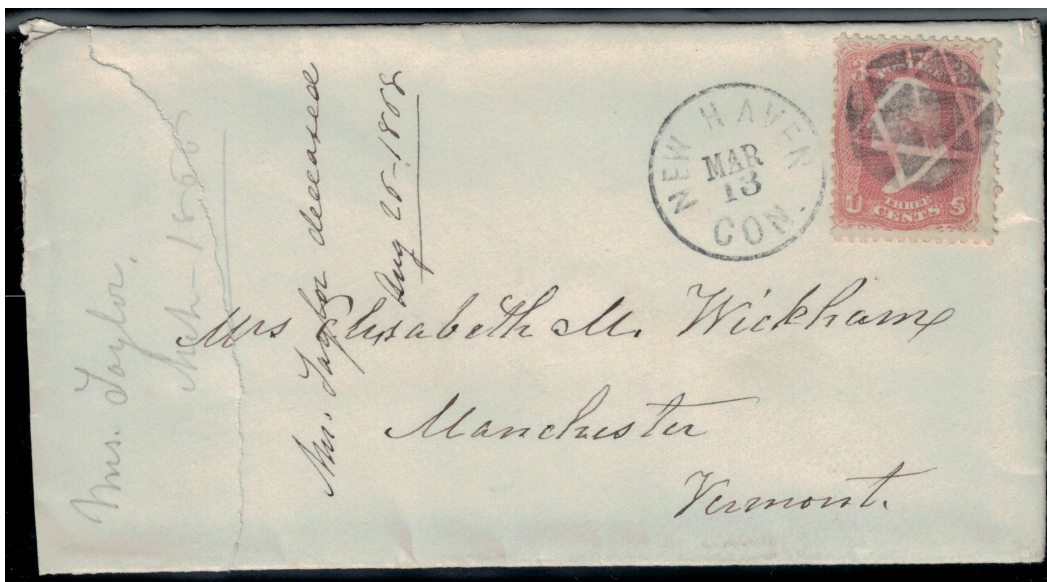 Mrs. Taylor.
Mch - 1868
Mrs. Taylor deceased
Aug 26 - 1868
NEW HAVEN
MAR
13
CON.
POSTAGE
U THREE S
CENTS
Mrs Elisabeth M. Wickham
Manchester
Vermont.